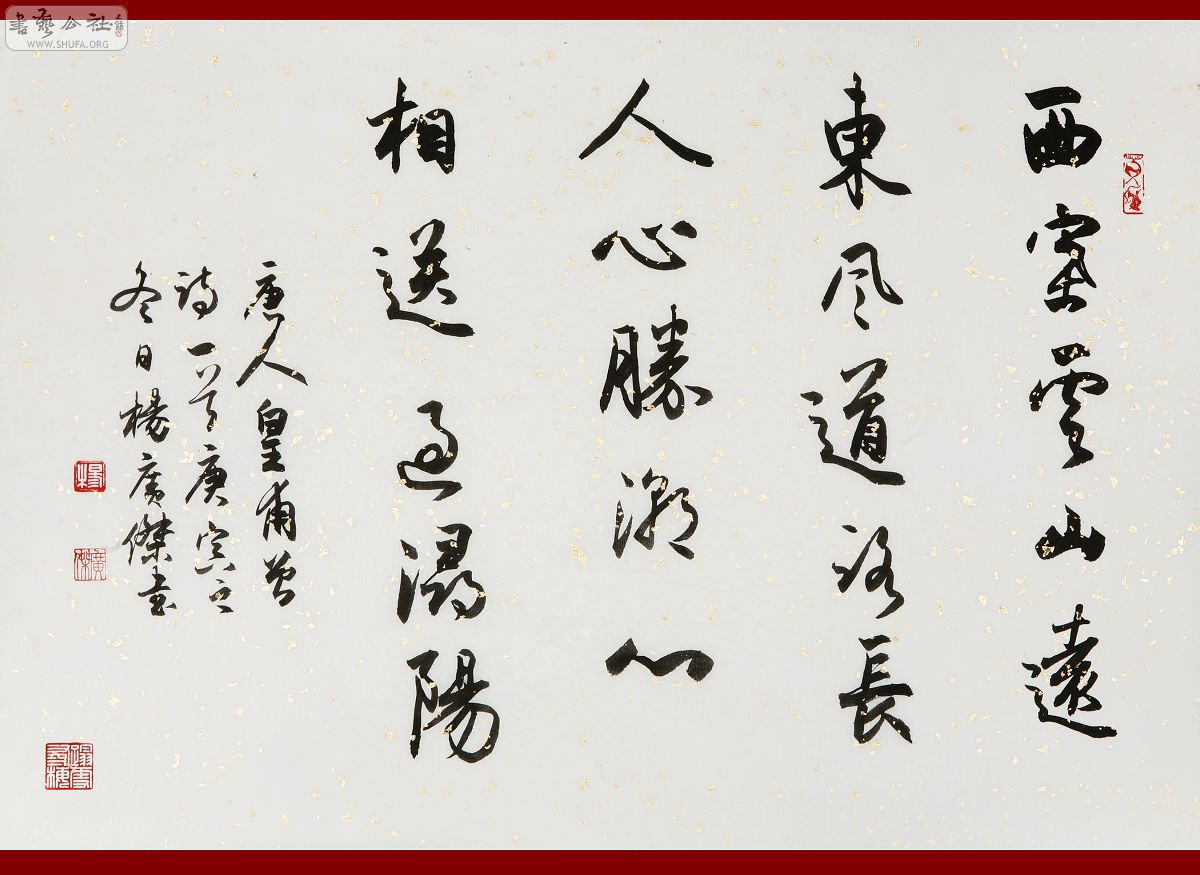 書藝公社
WWW.SHUFA.ORG
西塞雲山遠
東風道路長
人心勝潮水
相送過潯陽
唐人皇甫曾
詩一首庚寅之
冬日楊廣傑書
楊
廣傑